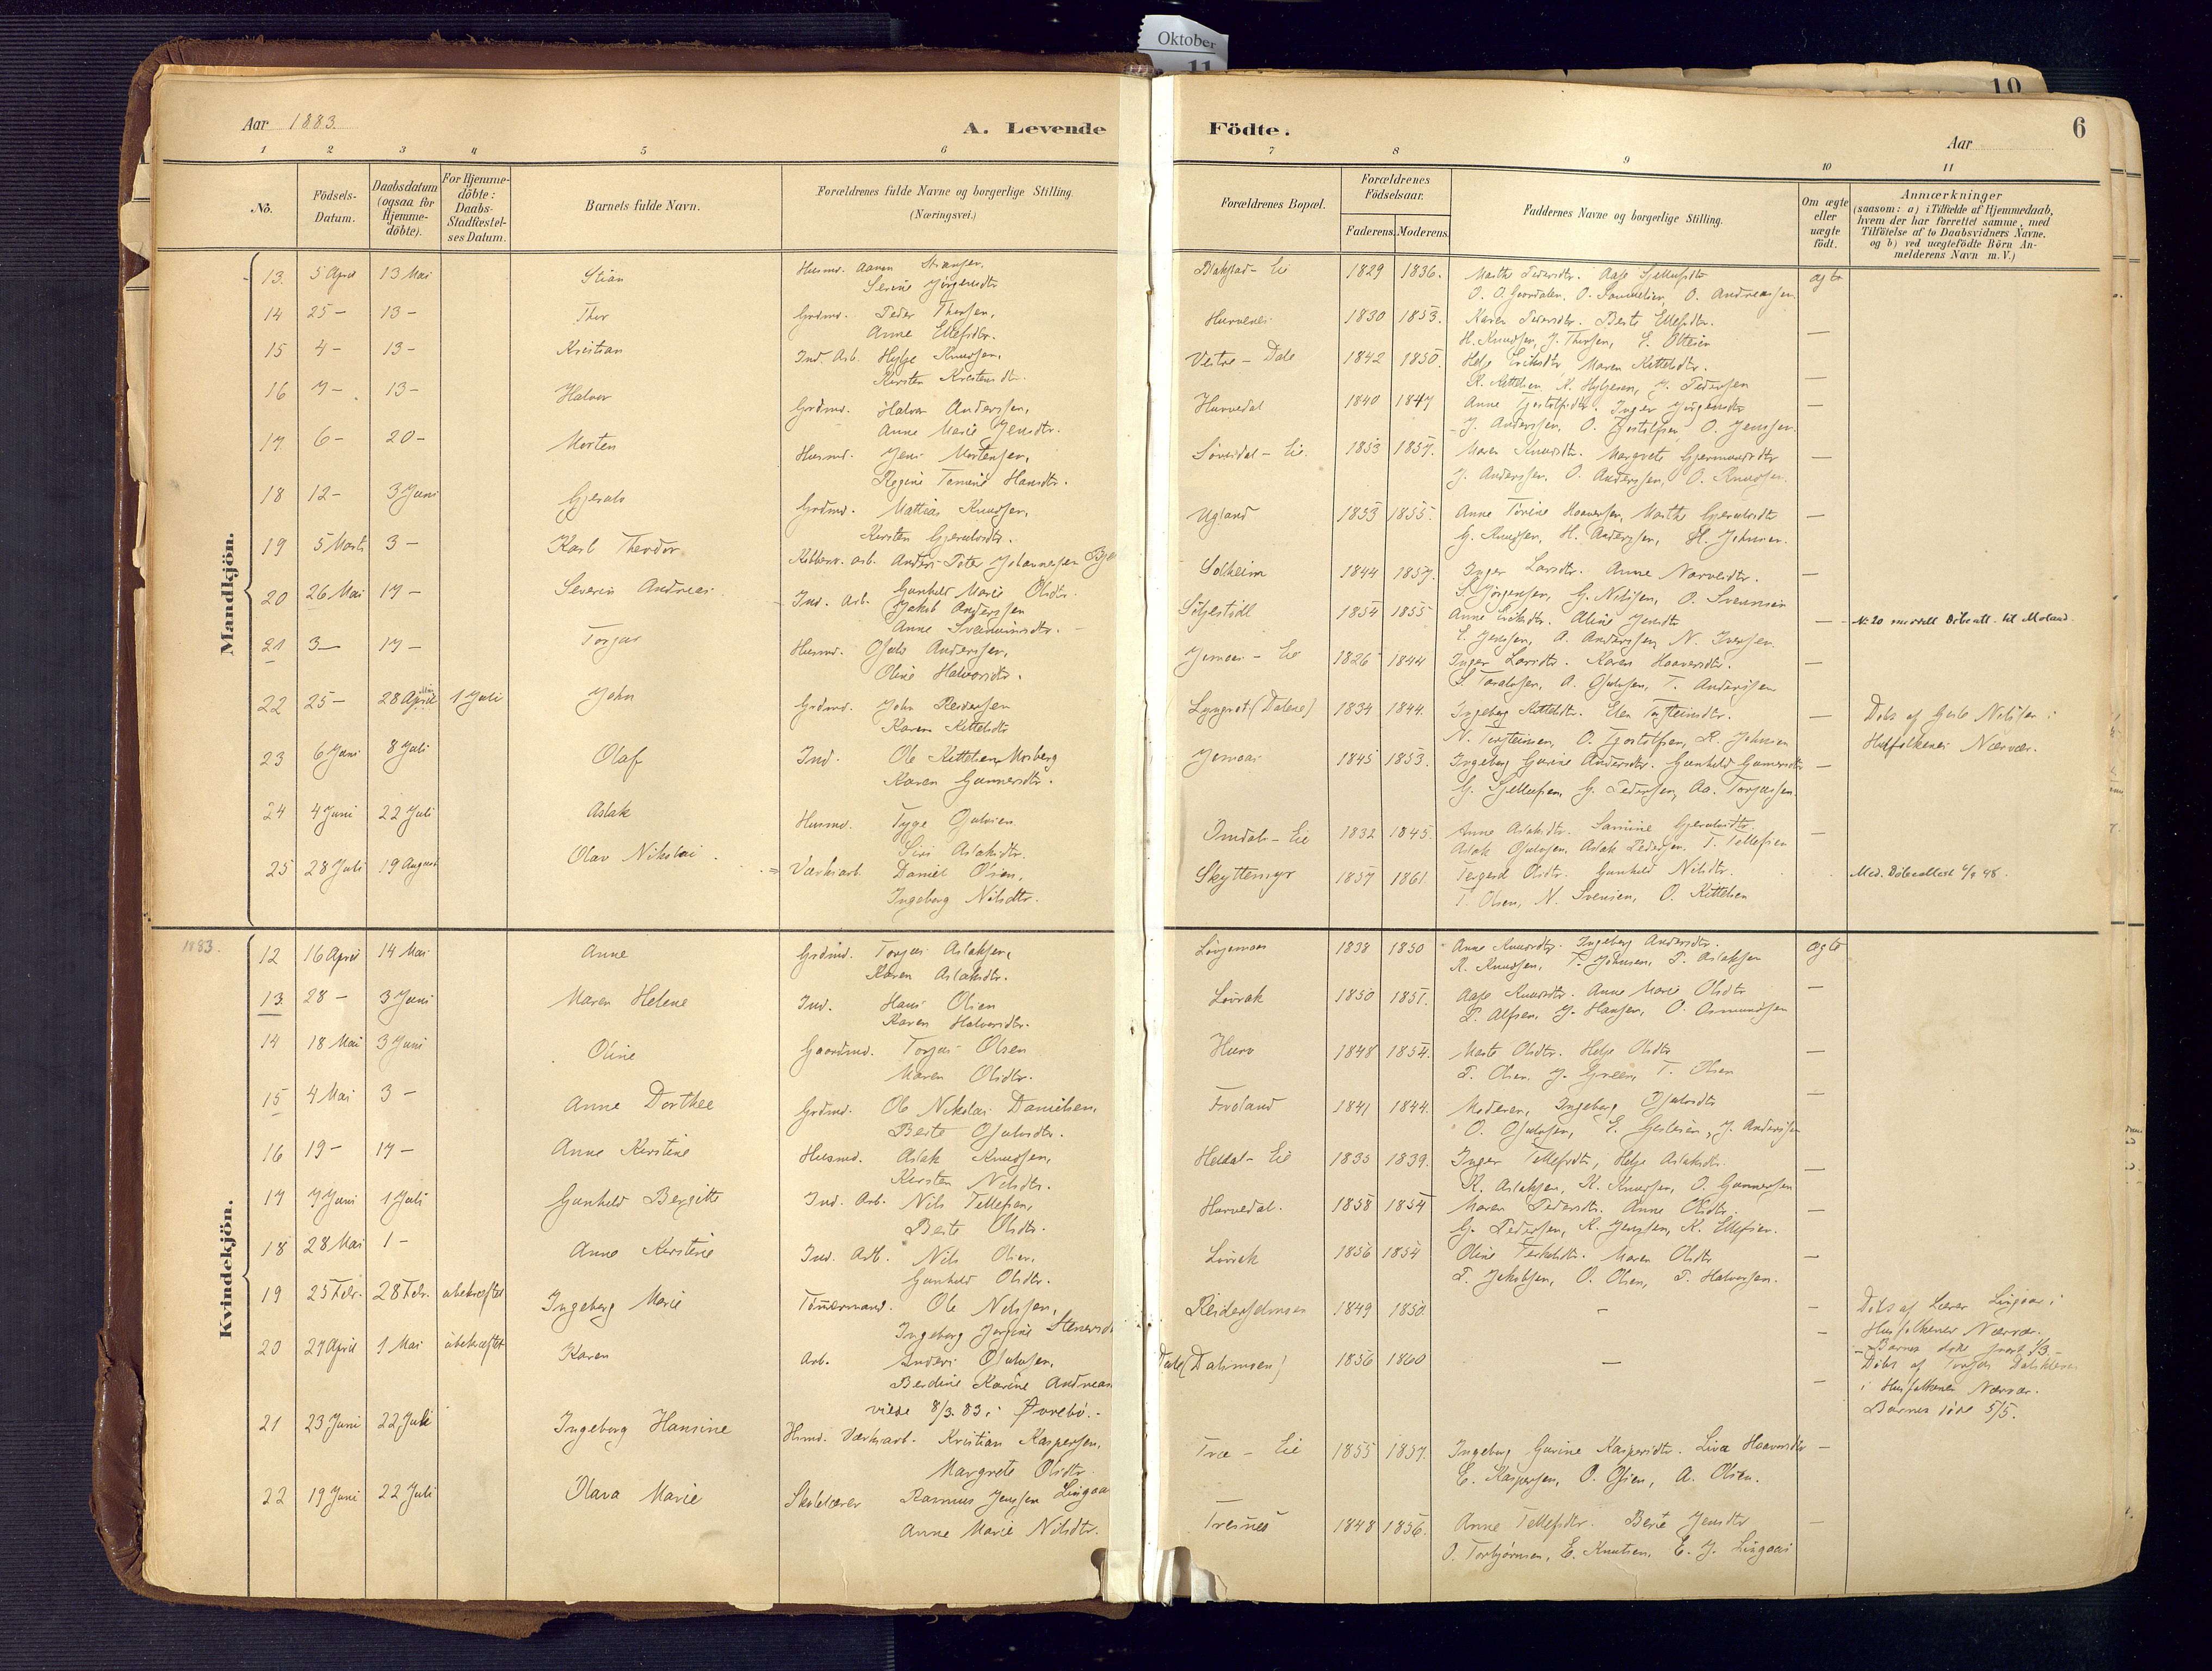 Oktober
11
10
Aar 1883
A. Levende
Födte.
Aar
6
1 2 3 4 5 6 7 8 9 10 11
No.
Födsels-
Datum.
Daabsdatum
(ogsaa for
Hjemme-
döbte).
For Hjemme-
döbte:
Daabs-
Stadfæstel-
ses Datum.
Barnets fulde Navn.
Forældrenes fulde Navne og borgerlige Stilling.
(Næringsvei.)
Forældrenes Bopæl.
Forældrenes
Födselsaar.
Faderens. Moderens.
Faddernes Navne og borgerlige Stilling.
Om ægte
eller
uægte
födt.
Anmærkninger
(saasom: a) i Tilfælde af Hjemmedaab,
hvem der har forrettet samme, med
Tilföielse af to Daabsvidners Navne,
og b) ved uægtefödte Börn An-
melderens Navn m. V.)
Mandkjön.
13. 5 April 13 Mai Stian Husmd. Aanen
Serine Jörgensdtr 1829 1836. ægte
O. Andreassen.
14 25 – 13 – Thor Grdmd. Peder Thorsen,
Anne Ellefsdtr. 1830 1853. Karen Pedersdtr. Berte Ellefsdtr. —
H. Knudsen, J. Thorsen, E. Ottesen
15 4 – 13 – Kristian Ind. Arb. Hylje Knudsen,
Kirsten Kristensdtr. Vestre – Dale 1842 1850. Helje Eriksdtr, Maren Kittelsdtr. —
K. Kittelsen, K. Hyljesen, J. Pedersen
16 7 – 13 – Halvor Grdmd. Halvor Anderssen,
Anne Marie Jensdtr. Hurvedal 1840 1847 Anne Tjostolfsdtr. Inger Jörgensdtr —
J. Anderssen, O. Tjostolfsen, O. Jenssen.
17 6 – 20 – Morten Husmd. Jens Mortensen,
Regine Tomine Hansdtr. 1853 1857. Maren Knudsdtr. Margrete Gjermundsdtr —
J. Anderssen, O. Anderssen, O. Knudsen.
18 12 – 3 Juni Gjerulv Grdmd. Mattias Knudsen,
Kirsten Gjerulvsdtr. Ugland 1853 1855. Anne Torine Haaversen, Marthe Gjerulvsdtr —
G. Knudsen, H. Anderssen, H. Johnsen.
19 5 Marts 3 – Karl Theodor arb. Anders Peter Johannessen
Gunhild Marie Olsdtr. Solheim 1844 1857. Inger Larsdtr. Anne Narvesdtr. —
S. Jörgensen, G. Nilssen, O. Svennsen
20 26 Mai 17 – Severin Andreas Ind. Arb. Jakob Anderssen
Anne Svenningsdtr. 1854 1855 Anne Eriksdtr. Aline Jensdtr — No 20 meddelt Döbeatt. til Moland.
E. Jenssen, A. Anderssen, N. Iversen.
21 3 – 17 – Torjus Husmd. Osulv Anderssen,
Oline Halvorsdtr. 1826 1844 Inger Larsdtr. Karen Haaversdtr. —
S. Taralvsen, A. Osulvsen, T. Anderssen
22 25 – 28 April 1 Juli John Grdmd. John Pedersen
Karen Kittelsdtr (Dalene) 1834 1844. Ingeborg Kittelsdtr. Elen Torsteinsdtr. — Döbt af Gjerulv Nilssen i
N. Torsteinsen, O. Tjostolfsen, K. Johnsen Husfolkenes Nærvær.
23 6 Juni 8 Juli Olaf Ind. Ole Kittelsen Mosberg
Karen Gunnersdtr. 1845 1853. Ingeborg Gurine Andersdtr. Gunhild Gunnersdtr —
G. Sjellufsen, G. Pedersen, Aa. Torjussen.
24 4 Juni 22 Juli Aslak Husmd. Tyge Osulvsen
Siri Aslaksdtr. Omdals – Eie 1832 1845. Anne Aslaksdtr. Samine Gjerulvsdtr. —
Aslak Osulvsen, Aslak Pedersen. T. Tellefsen
25 28 Juli 19 August Olav Nikolai Værksarb. Daniel Olsen,
Ingeborg Nilsdtr. Skyttemyr 1857 1861. Olsdtr. Gunhild Nilsdtr. Med. Döbeattest 6/9 48.
T. Olsen, N. Svensen, O. Kittelsen
Kvindekjön.
1883.
12 16 April 14 Mai Anne Grdmd. Torjus Aslaksen,
Karen Aslaksdtr. 1838 1850 Anne Knudsdtr. Ingeborg Andersdtr. ægte
K. Knudsen, T. Johnsen, T. Aslaksen
13 28 – 3 Juni Maren Helene Ind. Hans Olsen
Karen Halvorsdtr. Lövrak 1850 1851. Aase Knudsdtr. Anne Marie Olsdtr —
P. Alfsen, J. Hansen, O. Osmundsen
14 18 Mai 3 Juni Oline Gaardmd. Torjus Olsen
Maren Olsdtr. Hurv 1848 1854. Marte Olsdtr. Helje Olsdtr —
T. Olsen, J. Green, T. Olsen
15 4 Mai 3 – Anne Dorthee Grdmd. Ole Nikolai Danielsen,
Berte Osulvsdtr. Froland 1841 1844. Moderen, Ingeborg Osulvsdtr —
O. Osulvsen, J. Anderssen
16 19 – 17 – Anne Kirstine Husmd. Aslak Knudsen,
Kirsten Nilsdtr. Heldal – Eie 1835 1839. Inger Tellefsdtr, Helje Aslaksdtr. —
K. Aslaksen, K. Knudsen, O. Gunnersen
17 7 Juni 1 Juli Gunhild Bergitte Ind. Arb. Nils Tellefsen,
Berte Olsdtr. Hurvedal. 1858 1854 Maren Pedersdtr. Anne Olsdtr. —
G. Pedersen, K. Jenssen, K. Ellefsen.
18 28 Mai 1 – Anne Kirstine Ind. Arb. Nils Olsen,
Gunhild Olsdtr. Lövrak 1856 1854 Oline Terkelsdtr. Maren Olsdtr —
P. Jakobsen, O. Olsen, T. Halvorsen.
19 25 Febr. 28 Febr. ubekræftet Ingeborg Marie Tömmermand. Ole Nilssen,
Ingeborg Jorgine 1849 1850. – — Döbt af Lærer Lingaas i
Husfolkenes Nærvær.
20 27 April 1 Mai ubekræftet Karen Arb. Anders Osulvsen,
Berdine Karine Andreas
viede 8/3. 83. i Øvrebö. –
Dale (Dalsmoen) 1856 1860 – —
Döbt af Torjus
i Husfolkenes Nærvær.
Barnet döde 5/5.
21 23 Juni 22 Juli Ingeborg Hansine Hsmd. Værksarb. Kristian Kaspersen,
Margrete Olsdtr. Træ – Eie 1855 1857. Ingeborg Gurine Kaspersdtr. Liva Haaversdtr —
E. Kaspersen, O. Olsen, A. Olsen.
22 19 Juni 22 Juli Olava Marie Skolelærer Rasmus Jenssen Lingaas
Anne Marie Nilsdtr. Tresnes 1848 1856. Anne Tellefsdtr. Berte Jensdtr —
O. Torbjörnsen, E. Knutsen, E. J. Lingaas